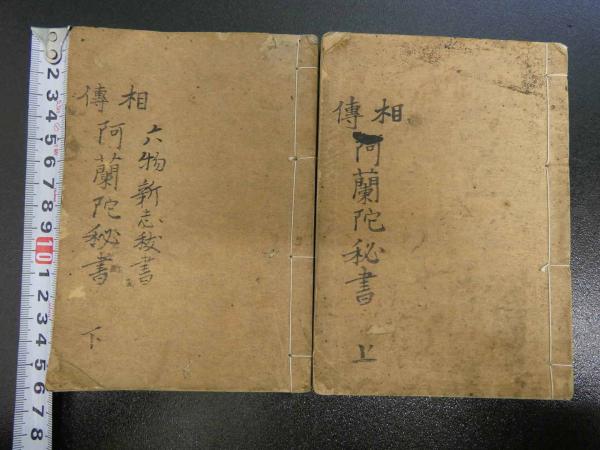 相傳
阿蘭陀秘書
上
相傳
六物新志秘書
阿蘭陀秘書
下
2 3 4 5 6 7 8 9 10 1 2 3 4 5 6 7 8